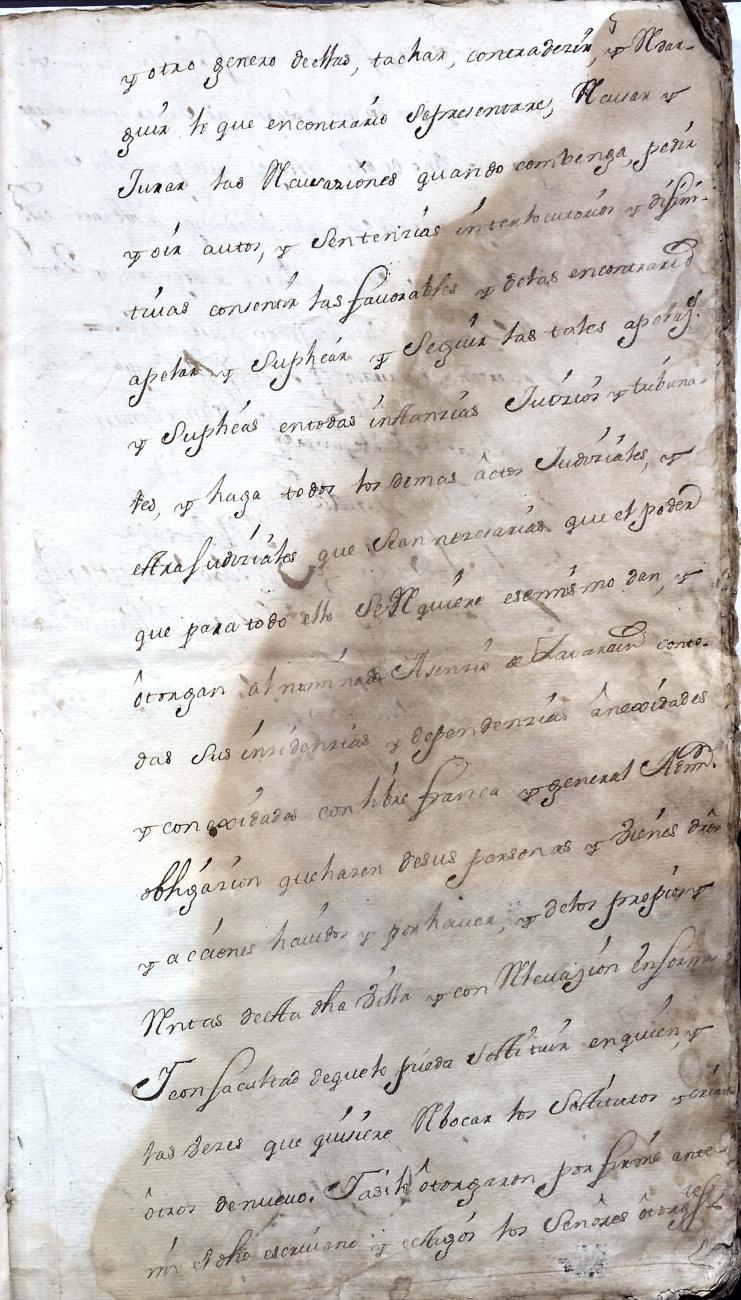 y otro genero de ellas, tachar, contradezir, y Rdar-
guir lo que encontrario sepresentare, Recusar y
Jurar las Recusaziones quando combenga, pedir
y oir autos, y Sentenzias interlocutorios y difini-
tiuas consentir las favorables y delas encontrario
apelar y Suplicar y Seguir las tales apelas.
y Suplicas entodas instanzias Juizios y tribuna-
les, y haga todos los demas âctos Judiziales, y
extraJudiziales que Sean nezesarias que el poder
que para todo ello SeRquiere esemismo dan, y
ôtorgan al nominado Asenzio de conto-
das Sus inzidenzias y dependenzias ânexidades
y conexidades con libre franca y general Admn.
obligazion que hazen desus personas y vienes drôs
y acciones hauidos y por hauer, y delos propios y
Rntas de esta dha Villa y con Releuazion enforma
Y con facultad de que lo pueda sostituir en quien, y
las vezes que quisiere Rbocar los Sostitutos y criar
ôtros denueuo. Y asi lo ôtorgaron por firme ante-
mi el dho escriuano y testigos los Señores ôtorgtes